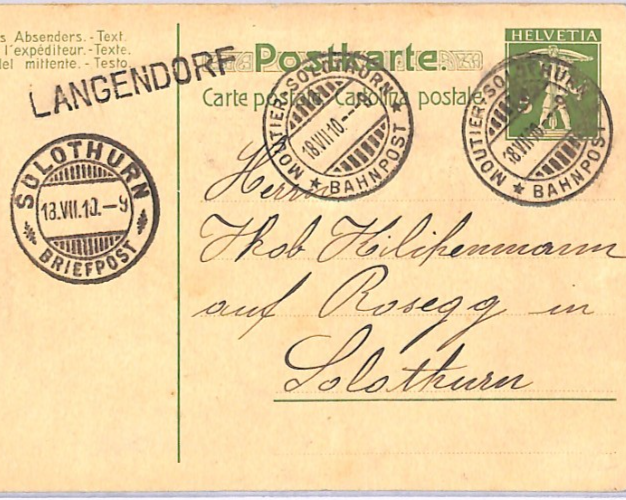 s Absenders. - Text.
l'expéditeur. - Texte.
del mittente. - Testo.
LANGENDORF
Postkarte.
Carte postale Cartolina postale
HELVETIA
MOUTIER-SOLOTHURN
18.VII.10.
★ BAHNPOST ★
MOUTIER-SOLOTHURN
18.VII.10.
★ BAHNPOST
SOLOTHURN
13.VII.10.-9
BRIEFPOST
Herrn
auf Rosegg in
Solothurn